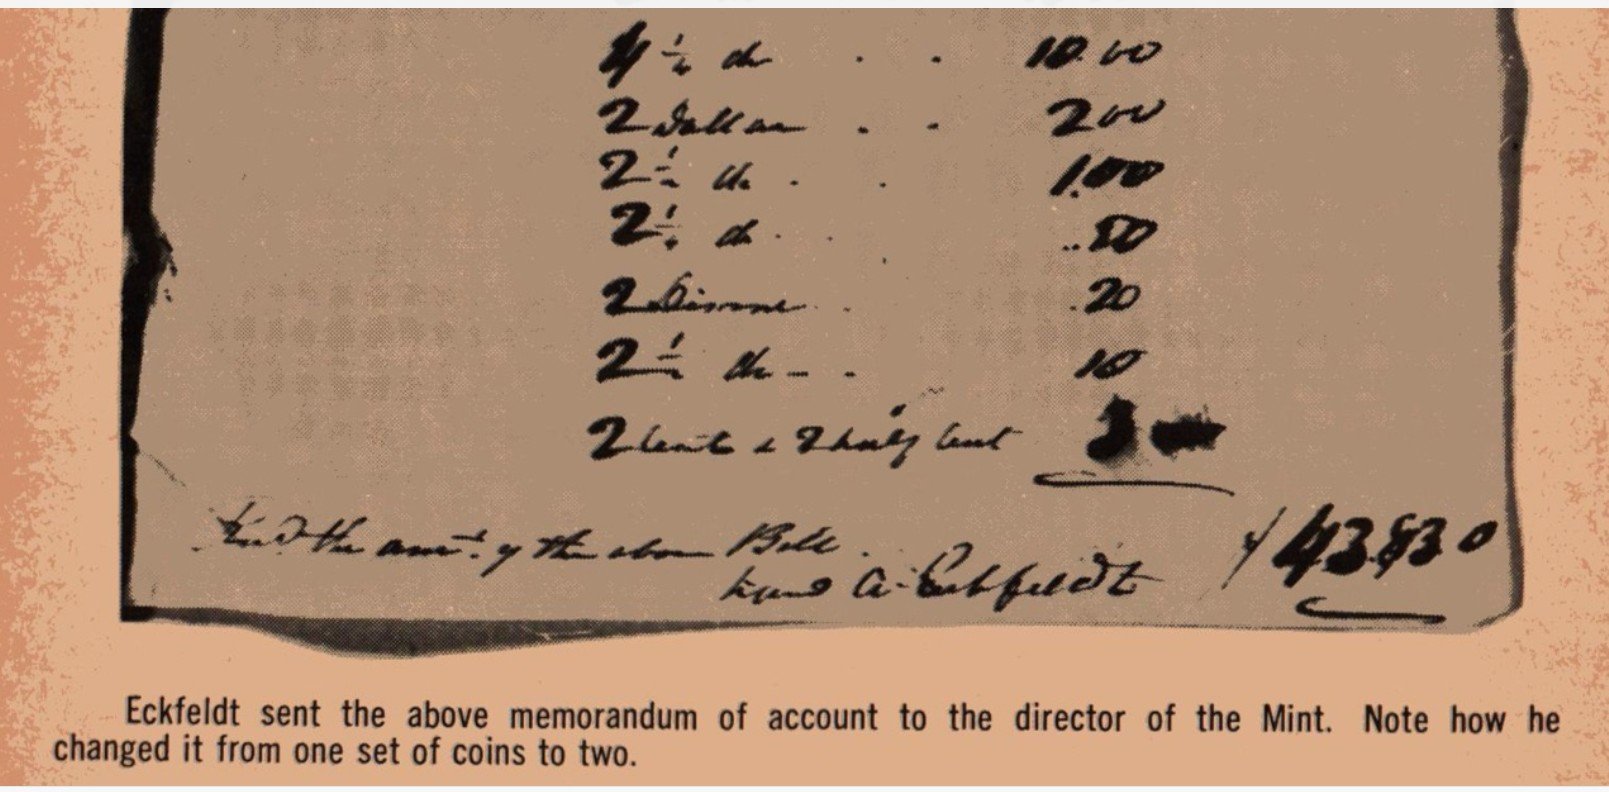 4 ¼ do . . 10.00
2 Dollar . . 200
2 ½ do . . 1.00
2 ¼ do . . ..50
2 Disme . .20
2 ½ do - . 10
2 Cent & 2 half Cent 3
the amt. of the above Bill .
A. Eckfeldt
43.830
Eckfeldt sent the above memorandum of account to the director of the Mint. Note how he
changed it from one set of coins to two.